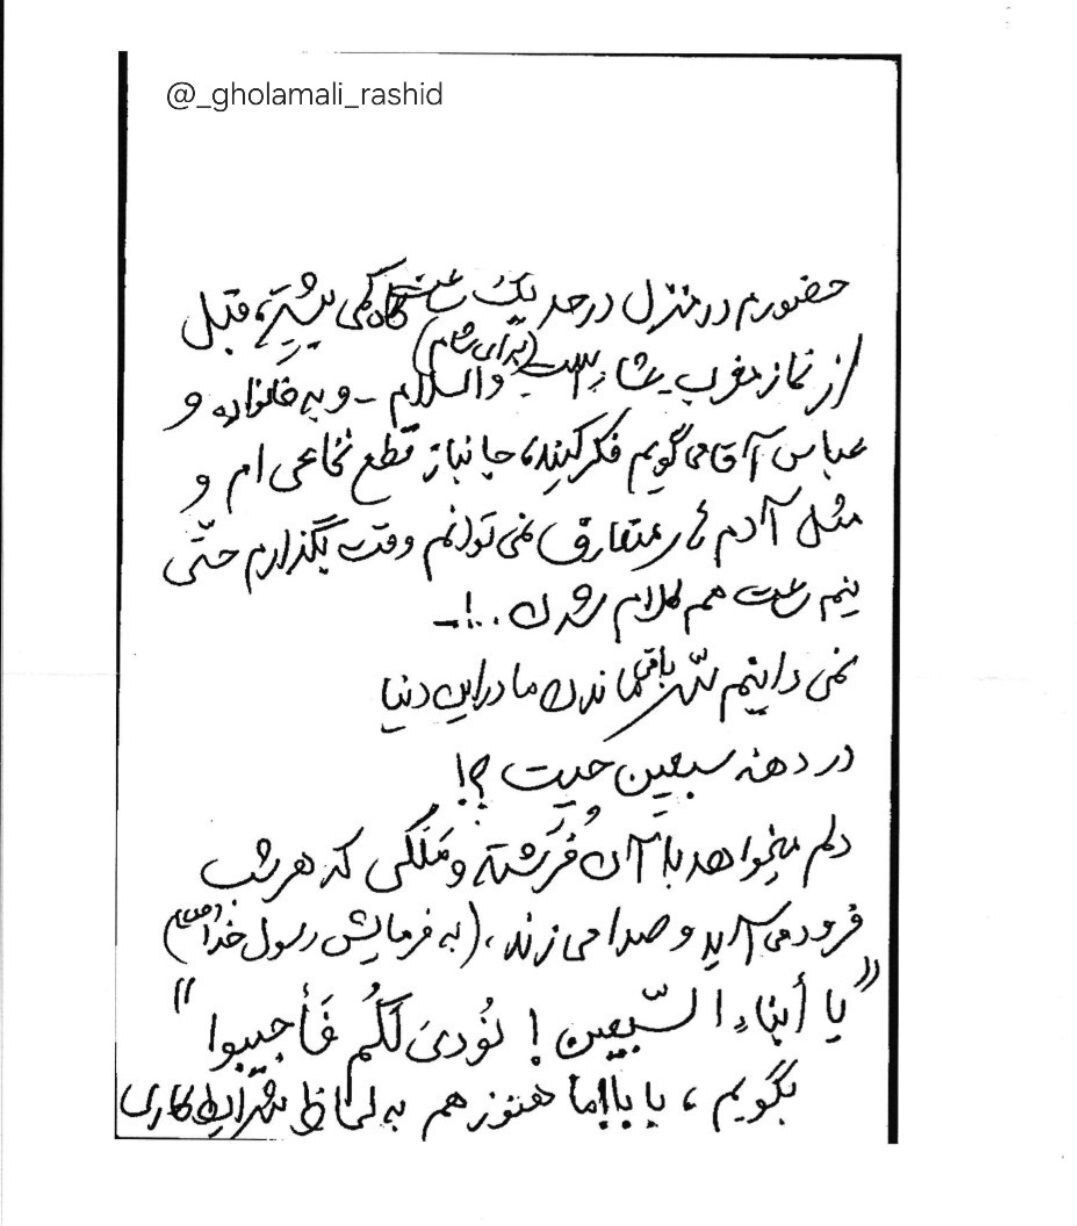 @_gholamali_rashid
حضورم در منزل در حد یک ساعت گاه کمی بیشتر، قبل
از نماز مغرب عشاء است (برای شام) والسلام - و به خانواده و
عباس آقا می گویم فکر کنید، جانباز قطع نخاعی ام و
مثل آدم های متعارف نمی توانم وقت بگذارم حتّی
نیم ساعت هم کلام شدن ..!-
نمی دانیم سّر باقیماندن ما در این دنیا
در دهه سبعین چیست ؟!
دلم میخواهد با آن فُرشته و مَلَکی که هر شب
فرود می آید و صدا می زند، (به فرمایش رسول خدا (ص))
"یا أبناءِ السّبعین! نُودیَ لَکُم فَأجیبوا"
بگویم، بابا اما هنوز هم به لحاظ شرایط کاری